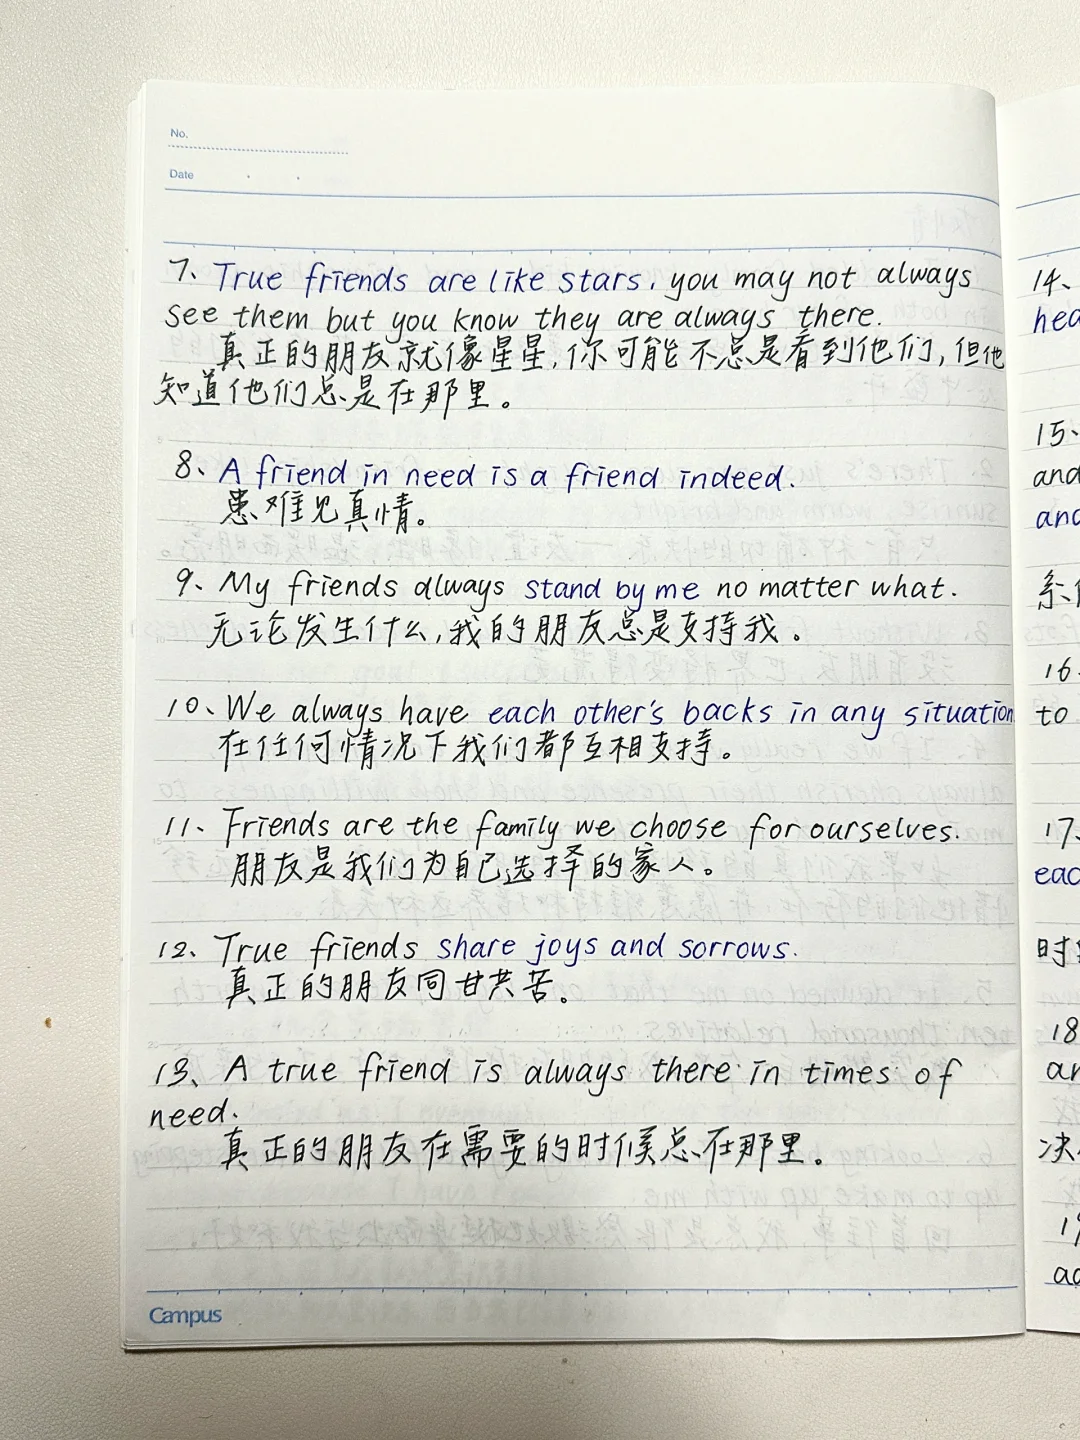 No.
Date
7、True friends are like stars, you may not always
see them but you know they are always there.
真正的朋友就像星星,你可能不总是看到他们,但他
知道他们总是在那里。
8、A friend in need is a friend indeed.
患难见真情。
9、My friends always stand by me no matter what.
无论发生什么,我的朋友总是支持我。
10、We always have each other's backs in any situation
在任何情况下我们都互相支持。
11、Friends are the family we choose for ourselves.
朋友是我们为自己选择的家人。
12、True friends share joys and sorrows.
真正的朋友同甘共苦。
13、A true friend is always there in times of
need.
真正的朋友在需要的时候总在那里。
Campus
14、
15、
and
and
16、
to
17、
时
18
决